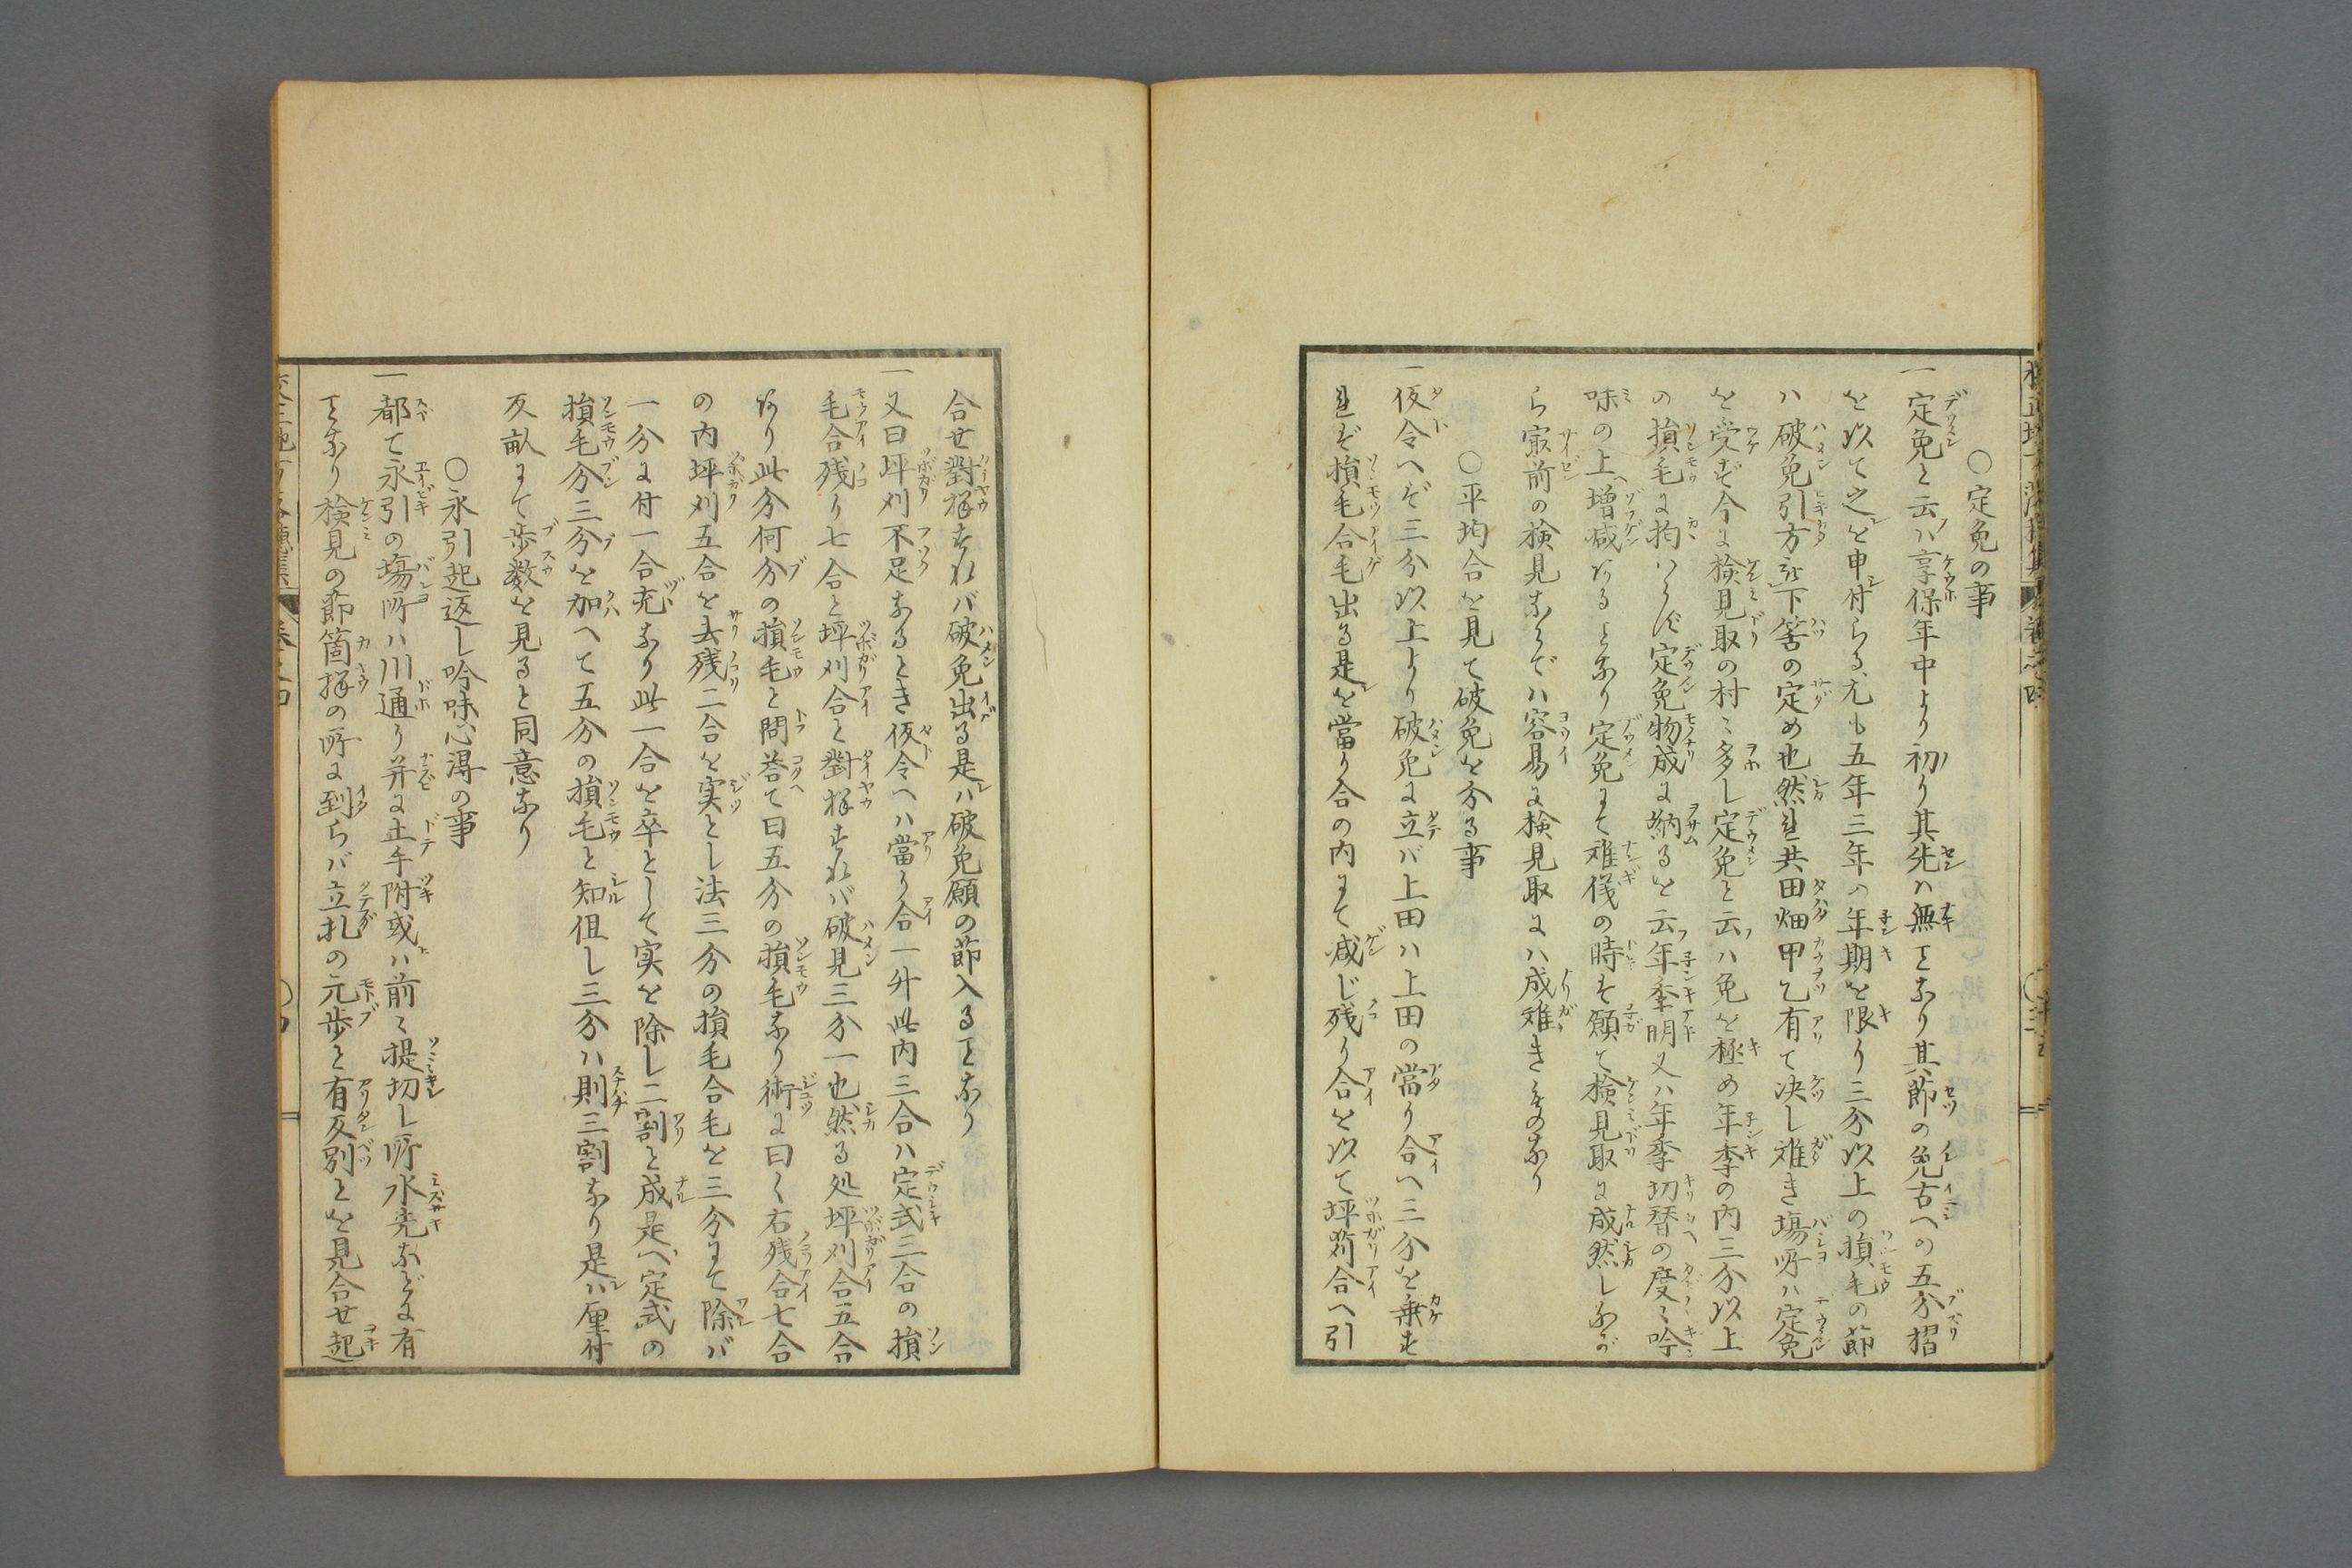 ○定免の事
一定免と云ハ享保年中より初り其先ハ無𪜈なり其節の免古への五分摺
を以て之を申付らる尤も五年三年の年期を限り三分以上の損毛の節
ハ破免引方被下筈の定め也然れ共田畑甲乙有て决し難き場所ハ定免
を受ず今に検見取の村々多し定免と云ハ免を極め年季の内三分以上
の損毛に拘はらず定免物成に納るを云年季明又ハ年季切替の度々吟
味の上増减あるとなり定免にて难儀の時は願て検見取に成然しなが
ら最前の検見ならでハ容易に検見取にハ成难きものなり
○平均合を見て破免を分る事
一仮令へば三分以上より破免に立バ上田ハ上田の當り合へ三分を乗す
れば損毛合毛出る是を當り合の内にて减じ残り合を以て坪苅合へ引
合せ對揚すれバ破免出る是ハ破免願の節入るとなり
一又曰坪刈不足なるとき仮令ヘハ當り合一升此内三合ハ定式三合の損
毛合残り七合と坪刈合と對揚すれバ破見三分一也然る処坪刈合五合
あり此分何分の損毛と問荅て曰五分の損毛なり術に曰く右残合七合
の内坪刈五合を去残二合を実とし法三分の損毛合毛を三分にて除バ
一分に付一合充なり此一合を卒として実を除し二割と成是へ定式の
損毛分三分を加へて五分の損毛と知但し三分ハ則三割なり是ハ厘付
反畝にて歩数を見ると同意なり
○永引起返し吟味心得の事
一都て永引の場所ハ川通り并に土手附或ハ前々提切し所水先などに有
となり検見の節箇様の所に到らバ立札の元歩と有反別とを見合せ起